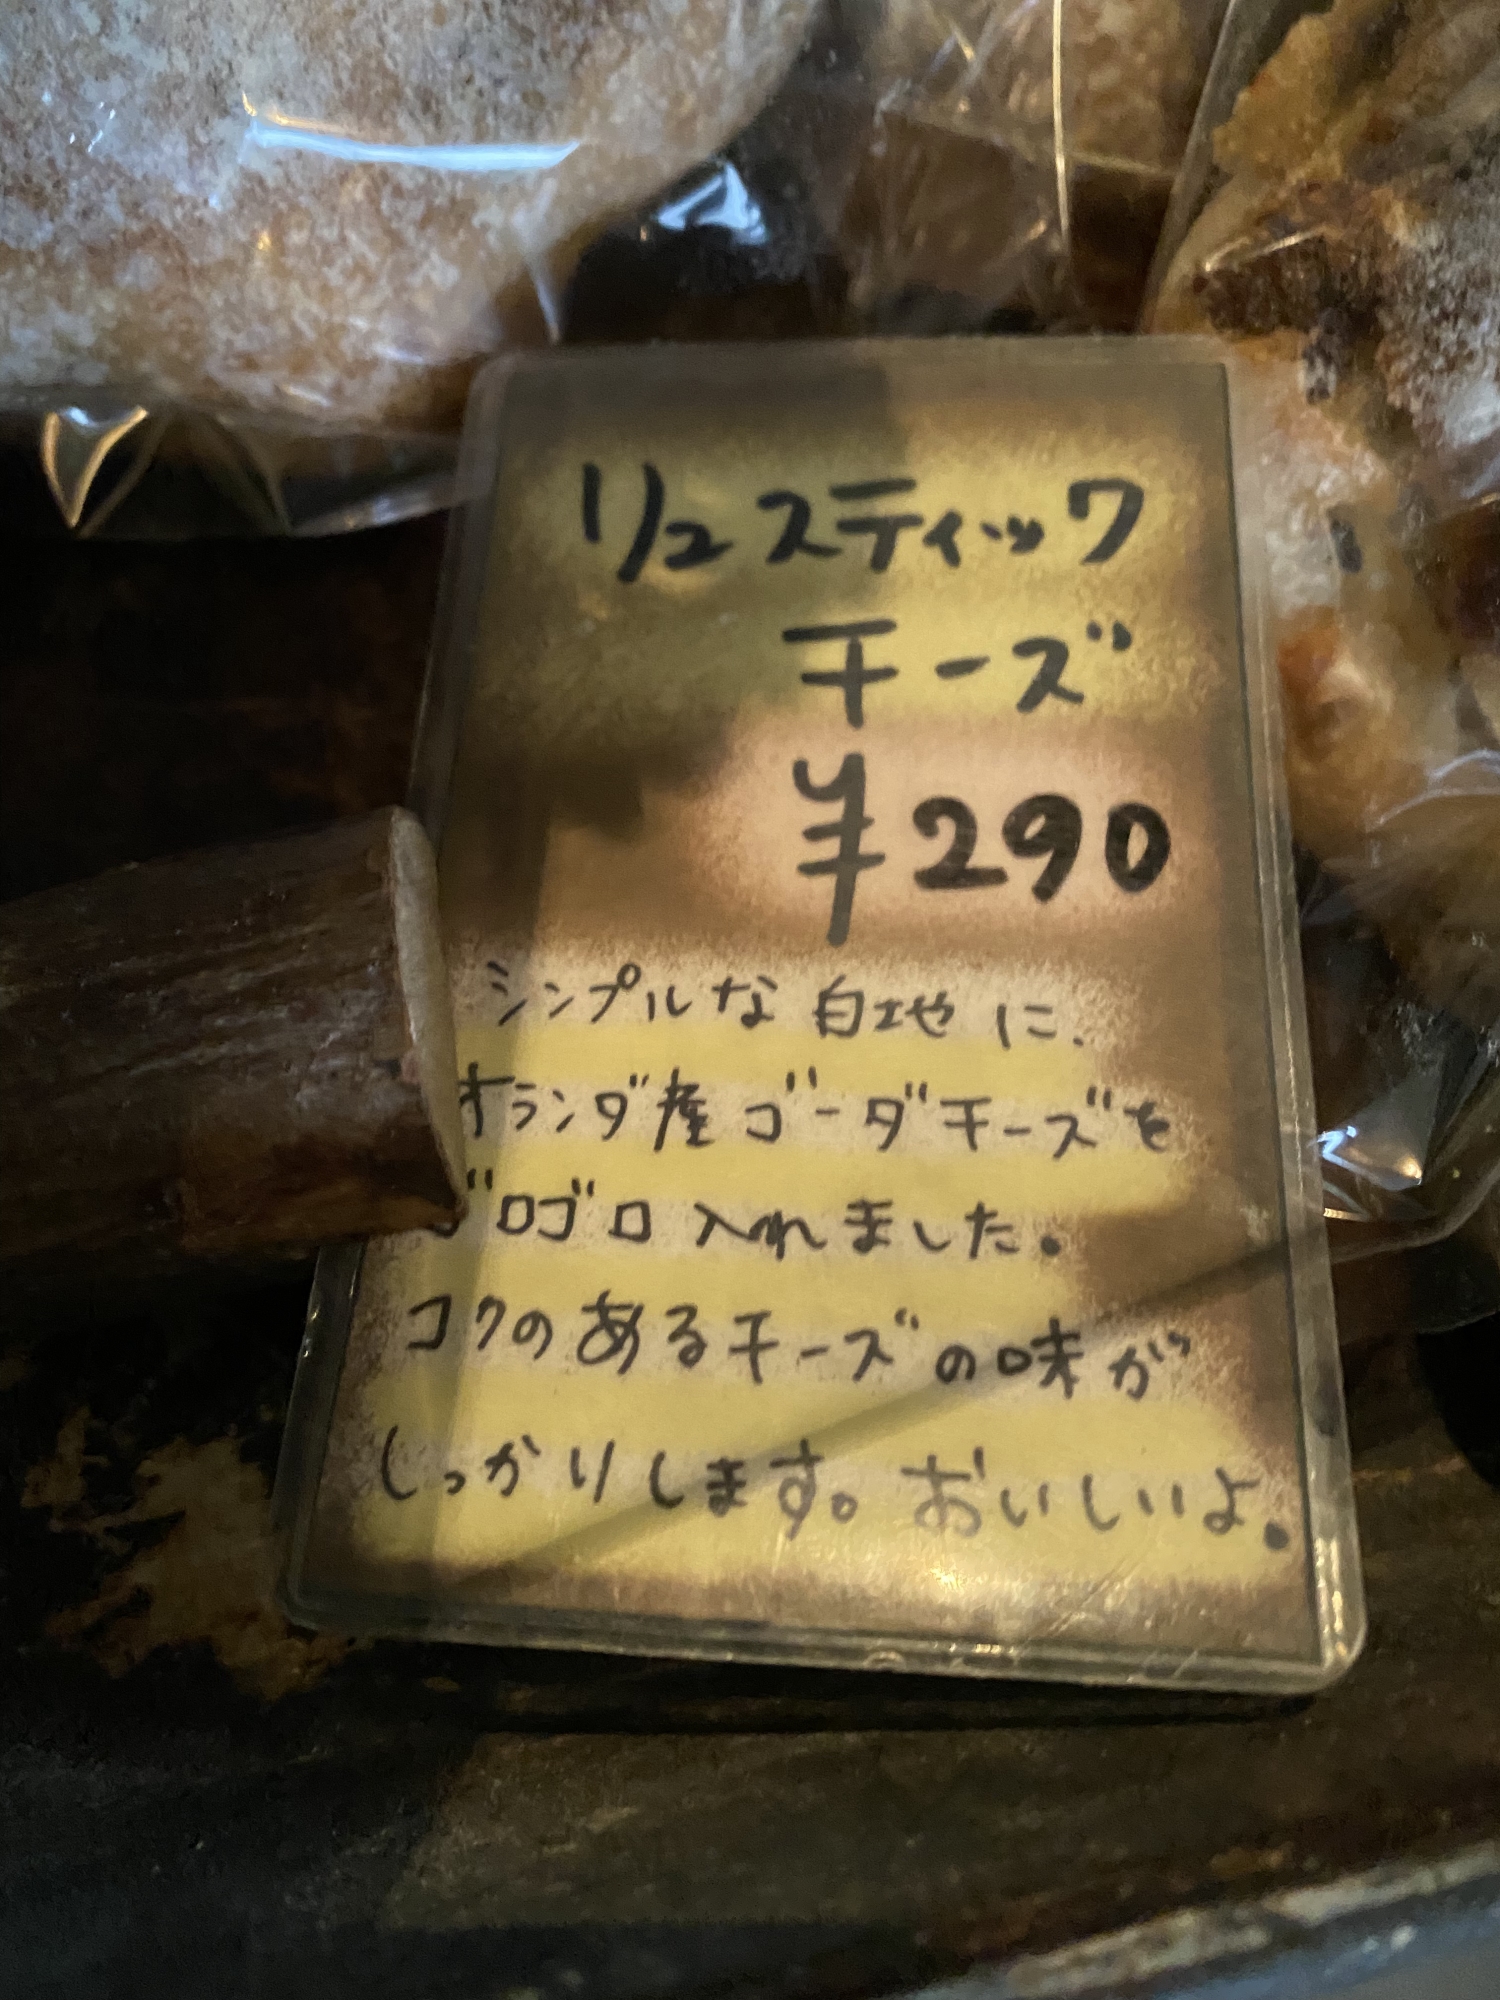 リュスティック
チーズ
¥290
シンプルな白地に、
オランダ産ゴーダチーズを
ゴロゴロ入れました。
コクのあるチーズの味が
しっかりします。おいしいよ。